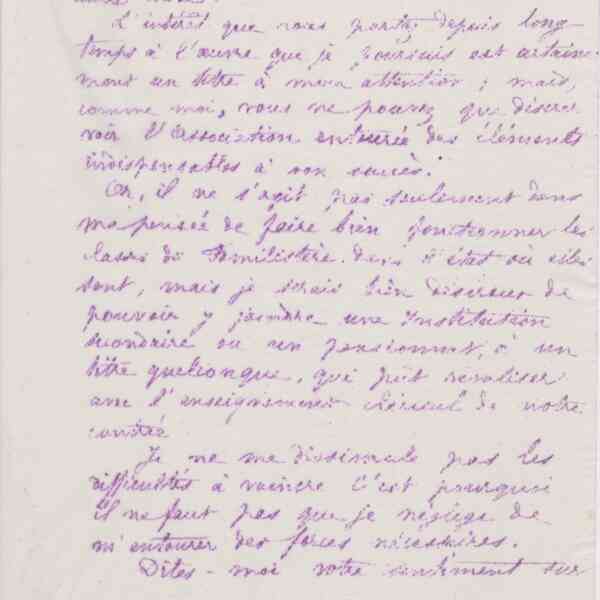 L'intérêt que vous portez depuis long-
temps à l'œuvre que je poursuis est certaine-
ment un titre à mon attention ; mais,
comme moi, vous ne pouvez que désirer
voir l'Association entourée des éléments
indispensables à son succès.
Or, il ne s'agit pas seulement dans
ma pensée de faire bien fonctionner les
classes du Familistère dans l'état où elles
sont, mais je serais bien désireux de
pouvoir y joindre une Institution
secondaire ou un pensionnat, à un
titre quelconque, qui pût rivaliser
avec l'enseignement clérical de notre
contrée
Je ne me dissimule pas les
difficultés à vaincre c'est pourquoi
il ne faut pas que je néglige de
m'entourer des forces nécessaires.
Dites-moi votre sentiment sur